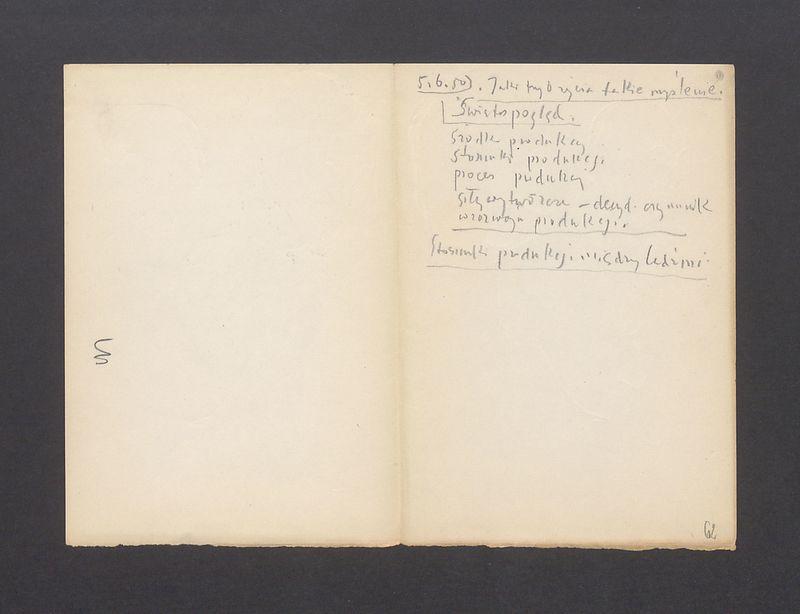 5.6.50). Jaki tryb życia takie myślenie.
Światopogląd.
środki produkcji
stosunki produkcji.
proces produkcji
siły wytwórcze – decyd. czynnik
w rozwoju produkcji.
Stosunki produkcji między ludźmi.
62